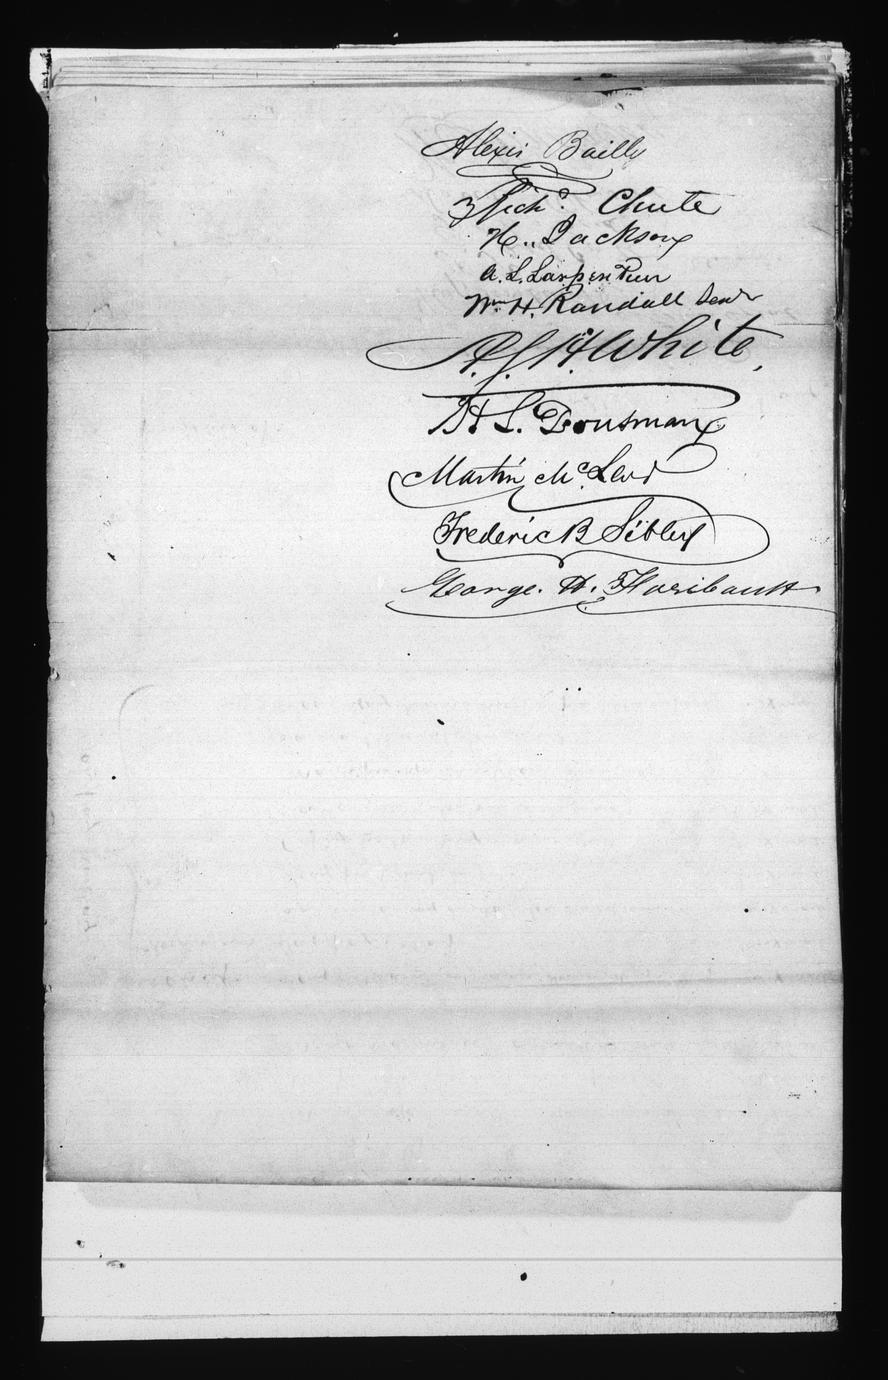 Alexis Bailly
Richd. Chute
H. Jackson
A. L. Larpenteur
Wm. H. Randall Senr
A. J. H. White,
H L. Dousman
Martin McLeod
Frederic B Sibley
George. H. Faribault